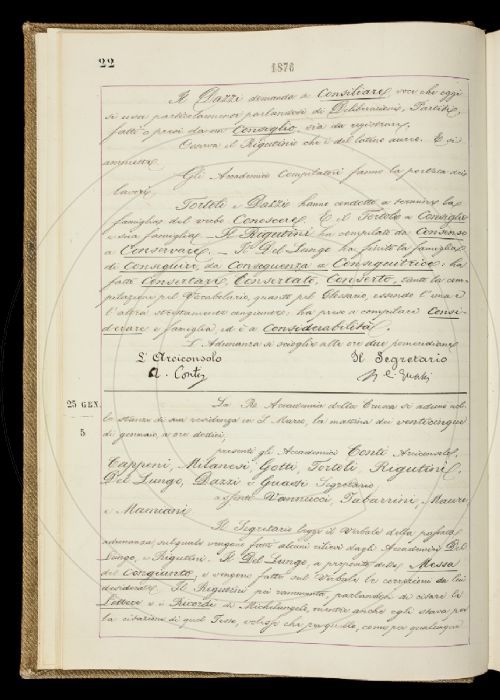 22
1876
Il Dazzi domanda se Consiliare, voce che oggi
si usa particolarmente parlandosi di Deliberazioni, Partiti,
fatti o presi da un Consiglio sia da registrare.
Osserva il Rigutini che è del latino aureo. E si
ammette.
Gli Accademici Compilatori fanno la portata dei
lavori.
Tortoli e Dazzi hanno condotto a termine la
famiglia del verbo Conoscere. E il Tortoli a Consiglio
e sua famiglia. — Il Rigutini ha compilato da Consenso
a Conservare. — Il Del Lungo ha finito la famiglia
di Conseguire, da Conseguenza a Conseguitrice: ha
fatto Consertare, Consertato, Conserto, tanto la com-
pilazione pel Vocabolario, quanto pel Glossario, essendo l'una e
l'altra strettamente congiunte: ha preso a compilare Consi-
derare e famiglia, ed è a Considerabilità.
L'Adunanza si scioglie alle ore due pomeridiane
L'Arciconsolo Il Segretario
A. Conti
25 GEN.
5
La R. Accademia della Crusca si aduna nel-
le stanze di sua residenza in S. Marco, la mattina dei venticinque
di gennaio, a ore dodici,
presenti gli Accademici Conti Arciconsolo,
Capponi, Milanesi, Gotti, Tortoli, Rigutini,
Del Lungo, Dazzi e Guasti Segretario
assenti Vannucci, Tabarrini, Mauri
e Mamiani
Il Segretario legge il Verbale della passata
adunanza, sul quale vengono fatti alcuni rilievi dagli Accademici Del
Lungo, e Rigutini. Il Del Lungo, a proposito della Messa
del Congiunto, e vengono fatte sul Verbale le correzioni da lui
desiderate. Il Rigutini poi rammenta, parlandosi di citare le
Lettere e i Ricordi di Michelangelo, mentre anche egli stava per
la citazione di quel Testo, che per quello, come per qualunque